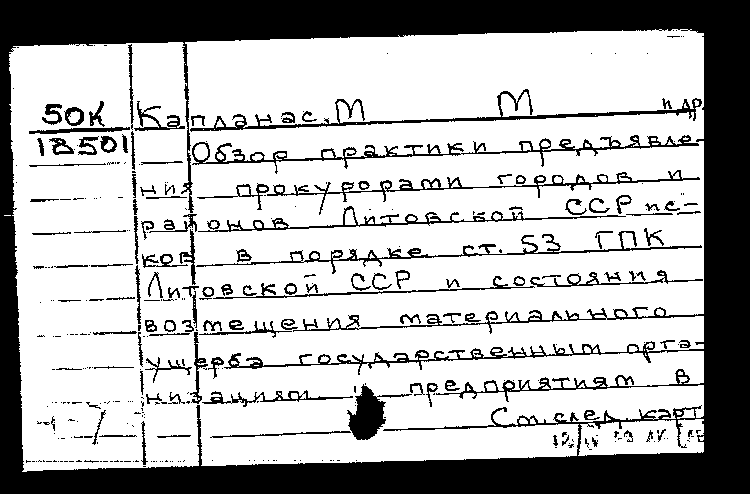 50К Капланас, М М и др.
18501 Обзор практики предъявле-
ния прокурорами городов и
районов Литовской ССР ис-
ков в порядке ст. 53 ГПК
Литовской ССР и состояния
возмещения материального
ущерба государственным орга-
низациям и предприятиям в
См. след. карт.